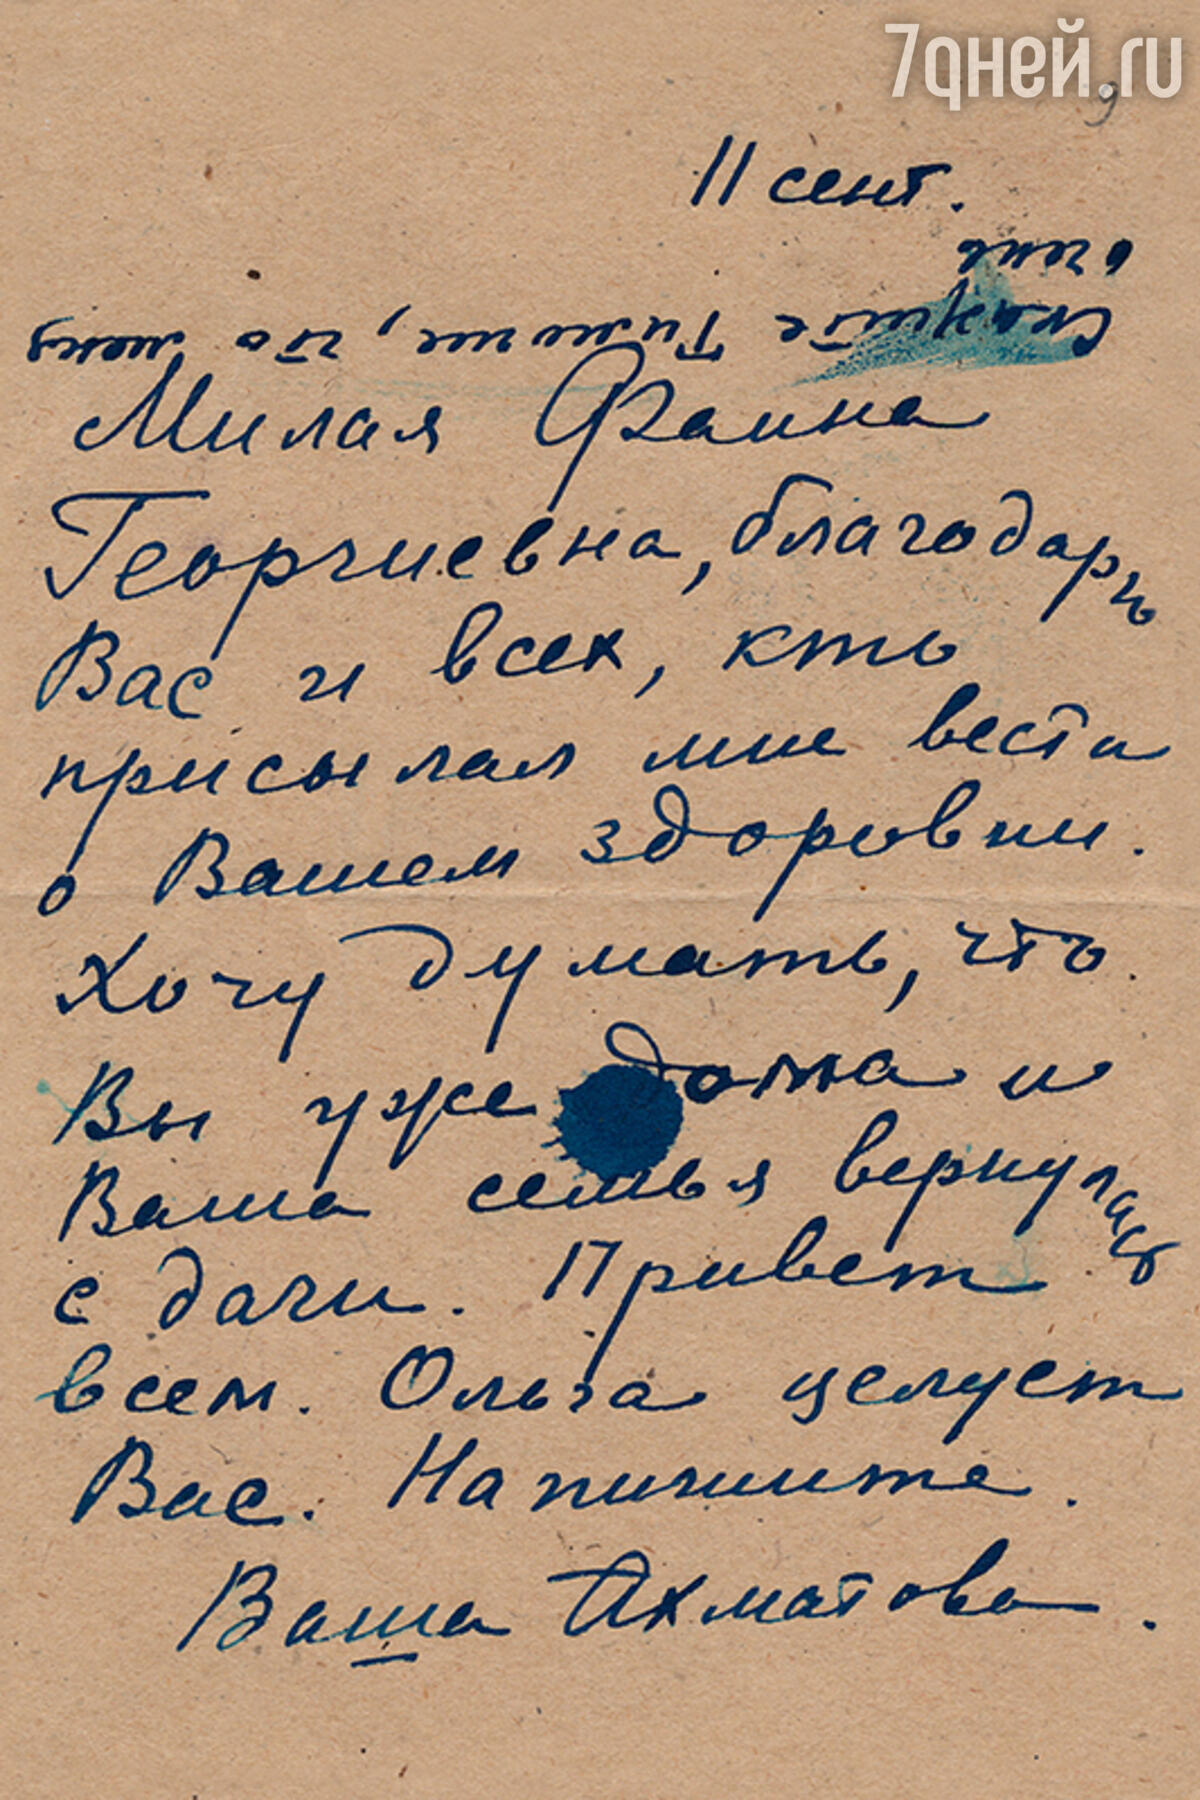 7дней.ru
9
11 сент.
очень
Скажите что
Милая Фаина
Георгиевна, благодарю
Вас и всех, кто
присылал мне вести
о Вашем здоровии.
Хочу думать, что
Вы уже дома и
Ваша семья вернулась
с дачи. Привет
всем. Ольга целует
Вас. Напишите.
Ваша Ахматова.